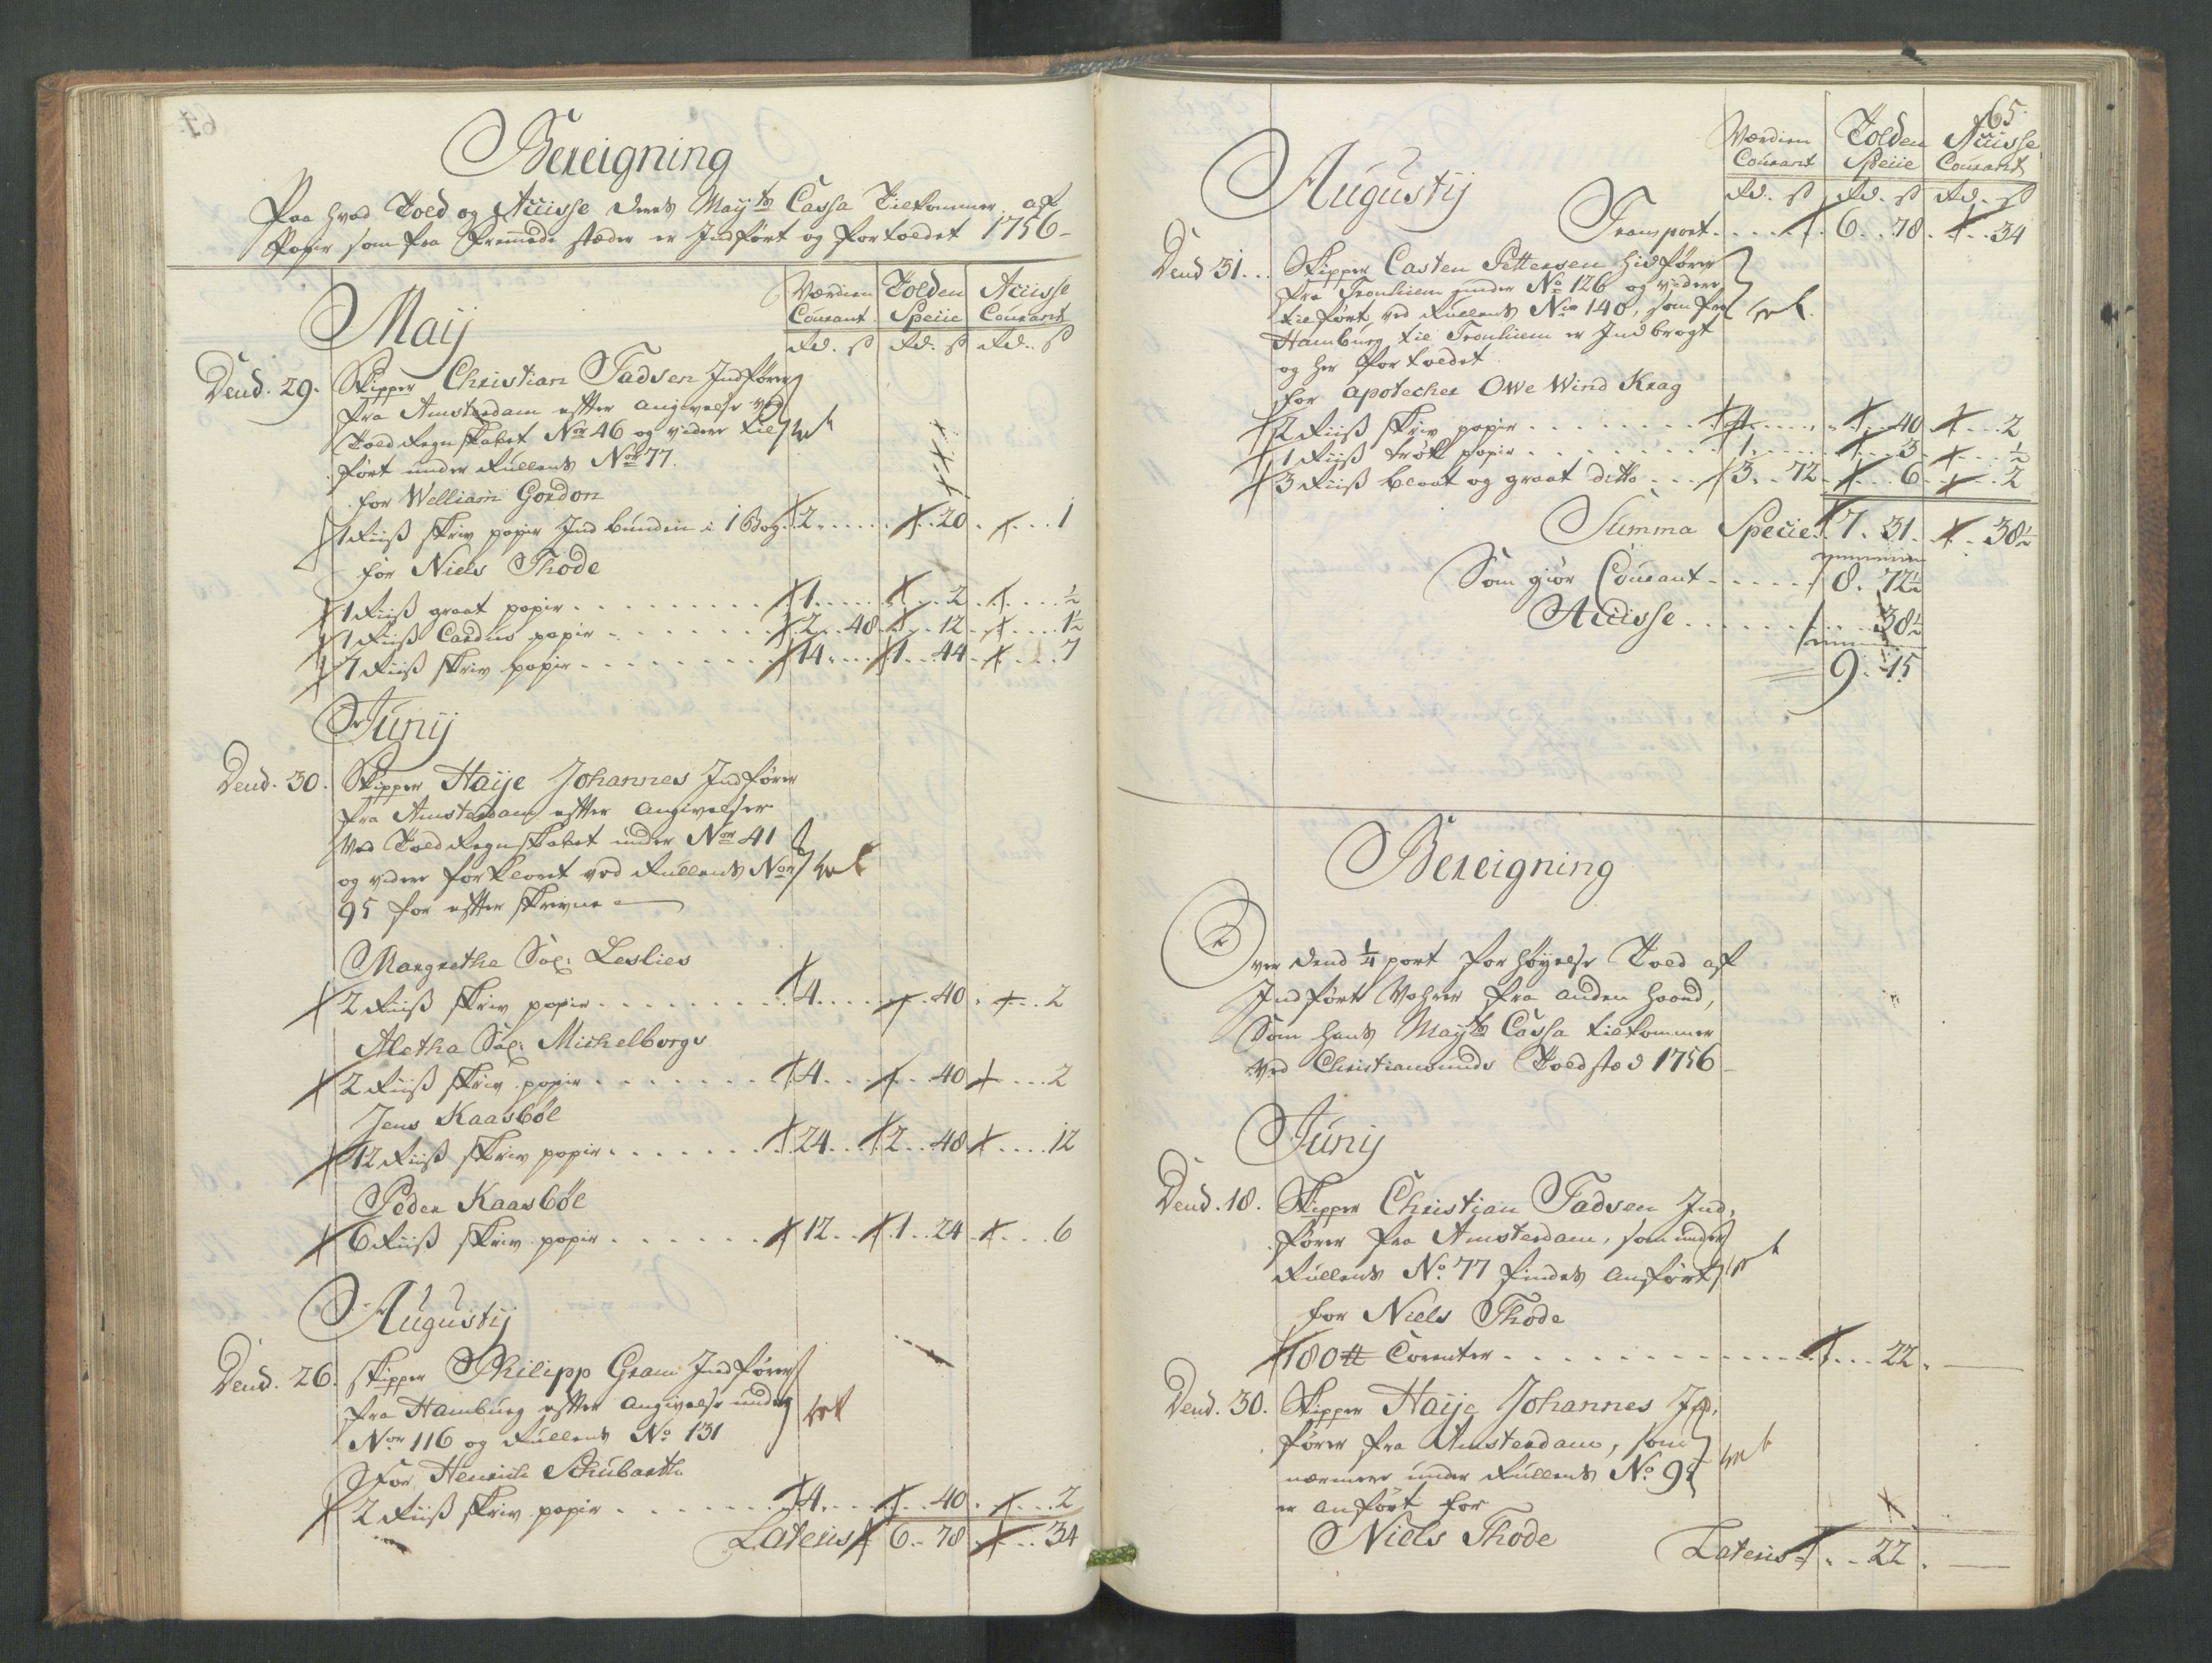 Bereigning
Paa hvad Told og Accisse deres Mayts Cassa Tilkommer af
Papir som fra fremmede stæder er Indført og fortoldet 1756-
Værdien Tolden Accisse
Courant Specie Courant
Rd. ß Rd. ß Rd. ß
Maij
Dend. 29. Skipper Christian Tadsen Indfører
fra Amsterdam efter angivelse ved
Told Regnskabet Nor 46 og videre til
ført under Rullens Nor 77.
for Welliam Gordon
1 Riiß skriv papir Indbunden i 1 Bog. 2. 20. 1
for Niels Thode
1 Riiß graat papir 1. 2. ½
1 Riiß Cardus papir 2. 48. 12. 1½
7 Riiß skriv papir 14. 1. 44. 7
Junij
Dend. 30. Skipper Haije Johannes Indfører
fra Amsterdam efter angivelser
ved Told Regnskabet under Nor 41
og videre forklaret ved Rullens Nor
95 for efterskrevne
Margrethe Sal: Leslies
2 Riiß skriv papir 4. 40. 2
Aletha Sal: Michelborgs
2 Riiß skriv papir 4. 40. 2
Jens Kaasbøl
12 Riiß skriv papir 24. 2. 48. 12
Peder Kaasbøl
6 Riiß skriv papir 12. 1. 24. 6
Augustij
Dend. 26. Skipper Philipp Gram Indfører
fra Hamburg efter angivelse under
Nor 116 og Rullens No 131
For Henrich Schubarth
2 Riiß skriv papir 4. 40. 2
Lateris 6. 78. 34
65.
Værdien Tolden Accisse
Courant Specie Courant
Rd. ß Rd. ß Rd. ß
Augustij
Transport 6. 78. 34
Dend 31. Skipper Casten Pettersen hidfører
fra Tronhiem under No 126 og videre
tilført ved Rullens Nor 140, som fra
Hamburg til Tronhiem er Indbragt
og her fortoldet
for apotecher Owe Wind Krag
2 Riiß skriv papir 4. 40. 2
1 Riiß trøk papir 1. 3. ½
3 Riiß blaat og graat ditto 3. 72. 6. 2
Summa Specie 7. 31. 38½
Som giør Courant 8. 72½
Accisse 38½
9. 15
Bereigning
Over dend ¼ part forhøyelse Told af
Indførte Vahrer fra anden haand,
Som hans Mayts Cassa tilkommer
ved Christiansunds Toldsted 1756
Junij
Dend. 18. Skipper Christian Tadsen Ind,
fører fra Amsterdam, som under
Rullens No. 77 findes anført
for Niels Thode
180 ℔ Corenter 22.
Dend. 30. Skipper Haije Johannes Ind,
fører fra Amsterdam, som
nærmere under Rullens No. 95
er anført for
Niels Thode
Lateris 22.